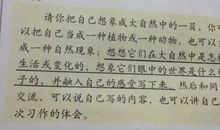 请你把自己想象成大自然中的一员,你可
以把自己当成一种植物或一种动物,也可以
成一种自然现象;想想它们在大自然中是怎
生活或变化的,想象它们眼中的世界是什么
子的,并融入自己的感受写下来。然后和同
交流,可以说自己写的内容,也可以讲自己
次习作的体会。